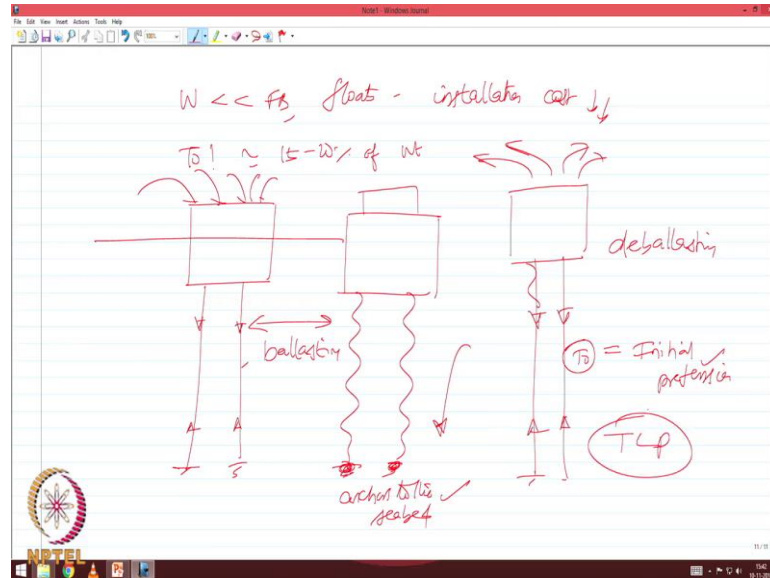 Note1 - Windows Journal
File Edit View Insert Actions Tools Help
W << FB, floats - installation cost ↓↓
To! ≃ 15-20% of wt
deballasting
ballasting
To = Initial pretension
TLP
anchor to the
seabed
NPTEL
11/11
15:42